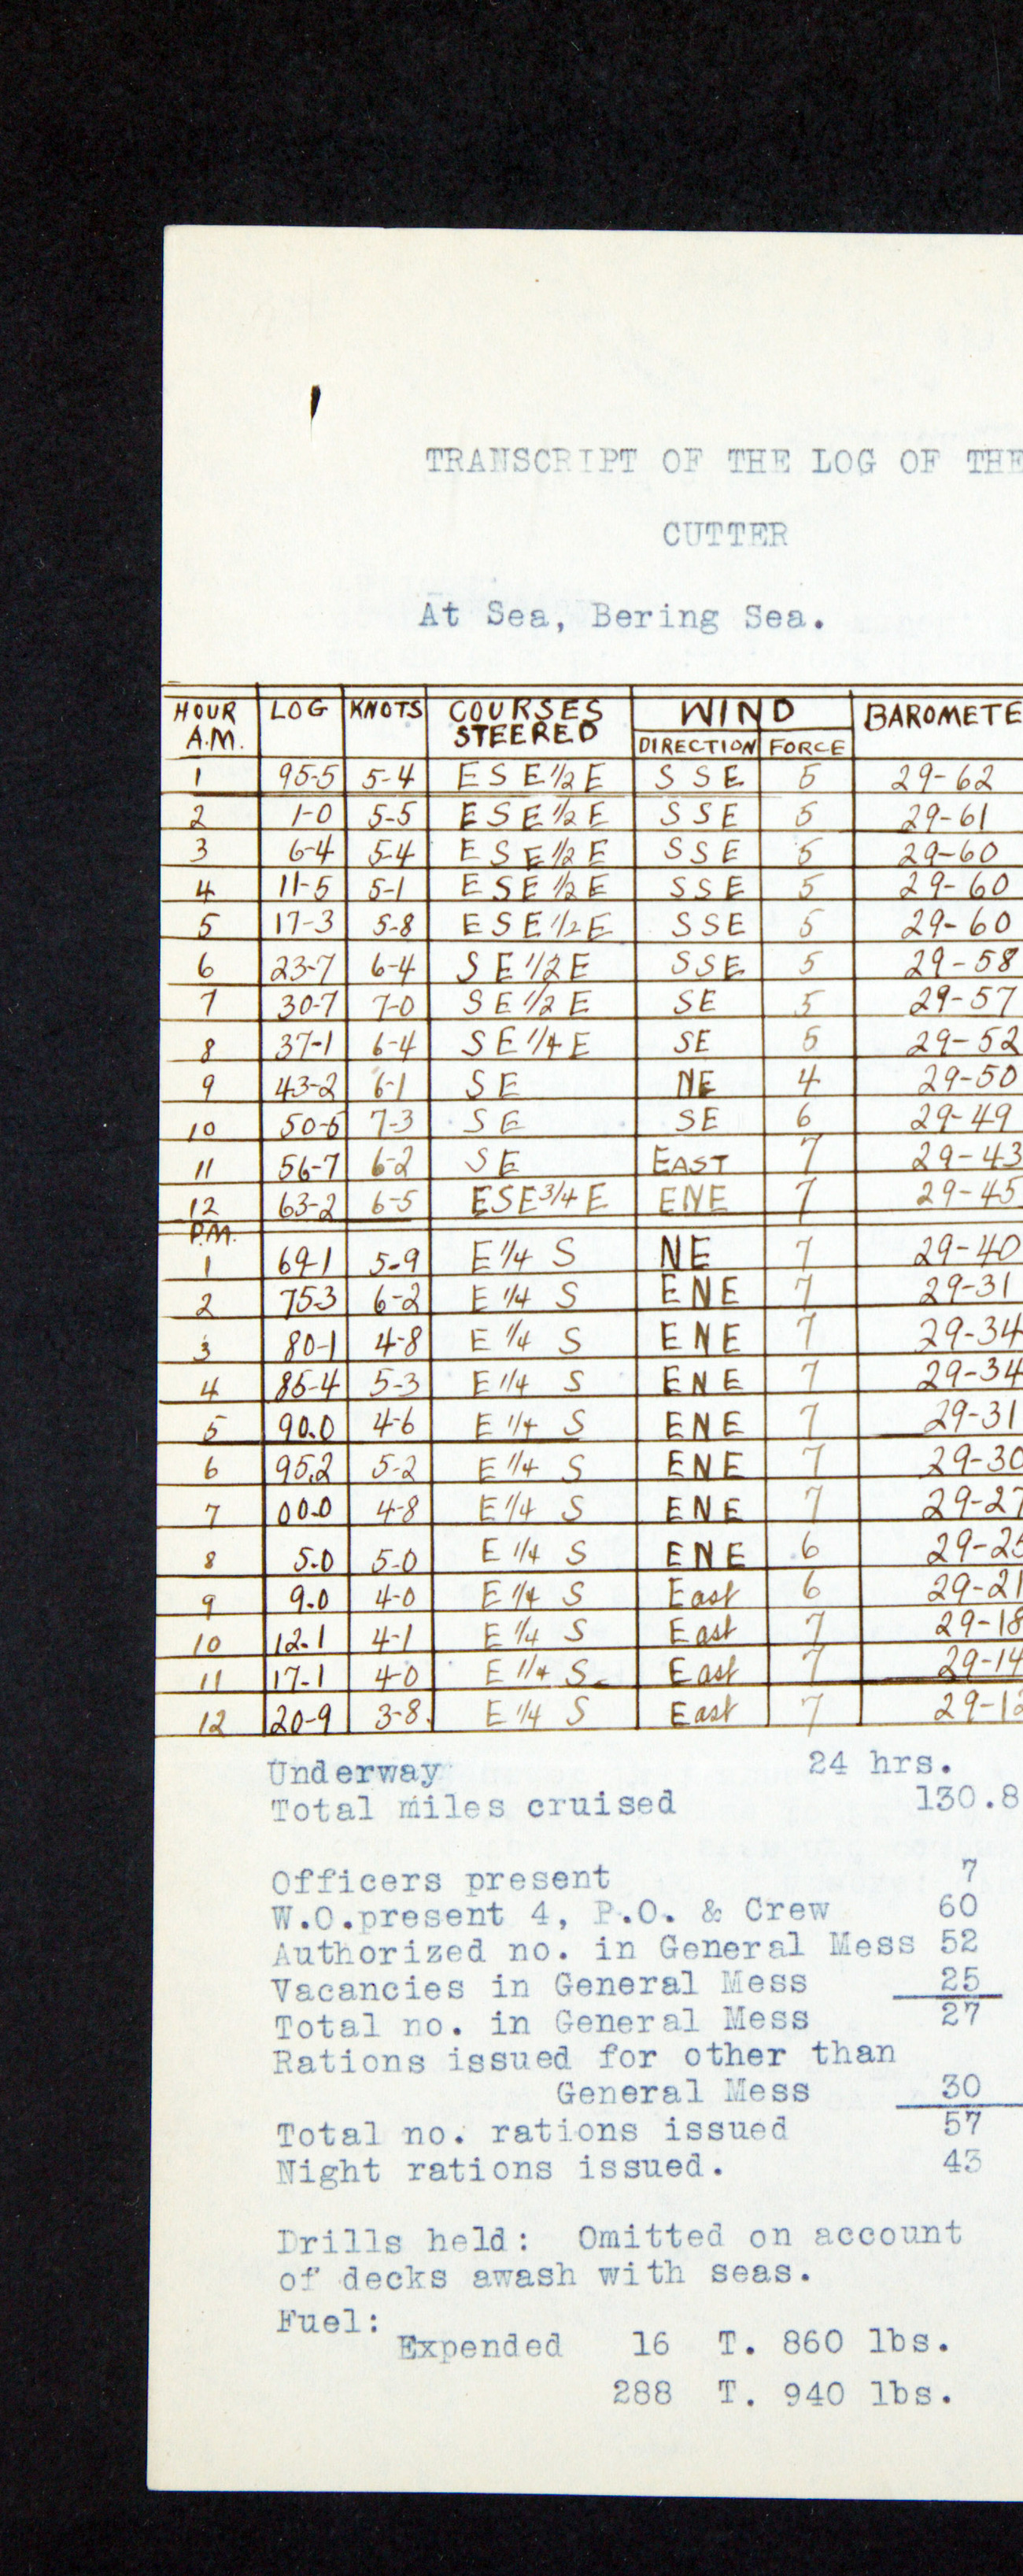 TRANSCRIPT OF THE LOG OF THE
CUTTER
At Sea, Bering Sea.
HOUR A.M. LOG KNOTS COURSES STEERED WIND DIRECTION FORCE BAROMETE
1 95-5 5-4 E S E 1/2 E S S E 5 29-62
2 1-0 5-5 E S E 1/2 E S S E 5 29-61
3 6-4 5-4 E S E 1/2 E S S E 5 29-60
4 11-5 5-1 E S E 1/2 E S S E 5 29-60
5 17-3 5-8 E S E 1/2 E S S E 5 29-60
6 23-7 6-4 S E 1/2 E S S E 5 29-58
7 30-7 7-0 S E 1/2 E SE 5 29-57
8 37-1 6-4 S E 1/4 E SE 5 29-52
9 43-2 6-1 S E NE 4 29-50
10 50-5 7-3 S E SE 6 29-49
11 56-7 6-2 S E EAST 7 29-43
12 63-2 6-5 ESE 3/4 E ENE 7 29-45
P.M.
1 69-1 5-9 E 1/4 S NE 7 29-40
2 75-3 6-2 E 1/4 S ENE 7 29-31
3 80-1 4-8 E 1/4 S ENE 7 29-34
4 85-4 5-3 E 1/4 S ENE 7 29-34
5 90.0 4-6 E 1/4 S ENE 7 29-31
6 95.2 5-2 E 1/4 S ENE 7 29-30
7 00.0 4-8 E 1/4 S ENE 7 29-27
8 5.0 5-0 E 1/4 S ENE 6 29-25
9 9.0 4-0 E 1/4 S East 6 29-21
10 12.1 4-1 E 1/4 S East 7 29-18
11 17-1 4-0 E 1/4 S East 7 29-14
12 20-9 3-8. E 1/4 S East 7 29-12
Underway 24 hrs.
Total miles cruised 130.8
Officers present 7
W.O.present 4, P.O. & Crew 60
Authorized no. in General Mess 52
Vacancies in General Mess 25
Total no. in General Mess 27
Rations issued for other than
General Mess 30
Total no. rations issued 57
Night rations issued. 43
Drills held: Omitted on account
of decks awash with seas.
Fuel:
Expended 16 T. 860 lbs.
288 T. 940 lbs.